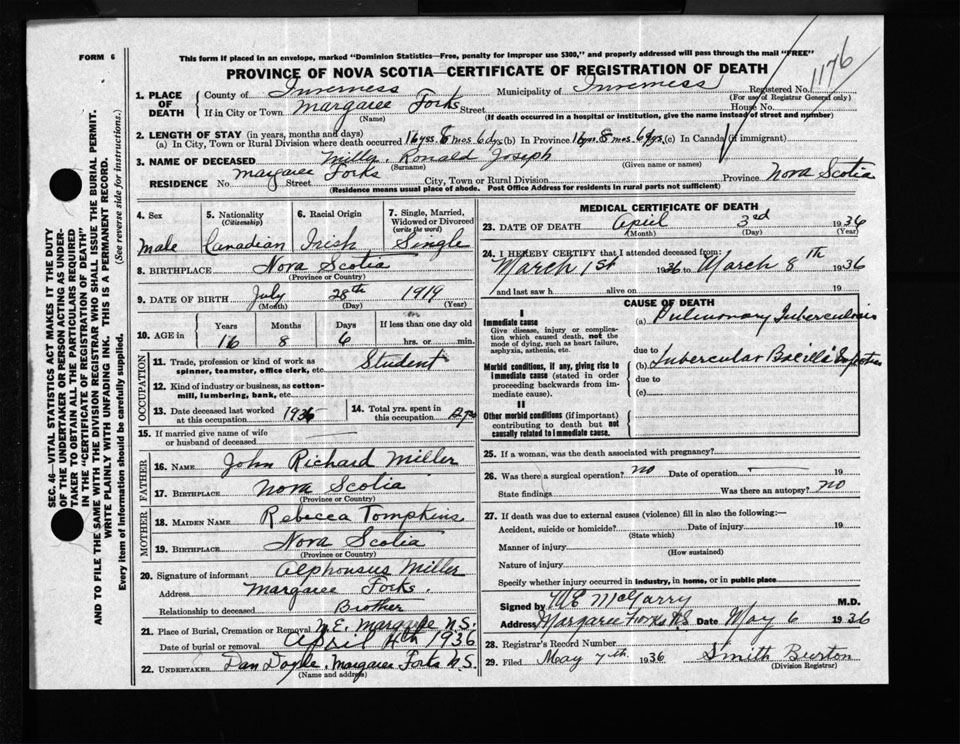 FORM 6
This form if placed in an envelope, marked "Dominion Statistics—Free, penalty for improper use $300," and properly addressed will pass through the mail "FREE"
PROVINCE OF NOVA SCOTIA—CERTIFICATE OF REGISTRATION OF DEATH
SEC. 46—VITAL STATISTICS ACT MAKES IT THE DUTY
OF THE UNDERTAKER OR PERSON ACTING AS UNDER-
TAKER TO OBTAIN ALL THE PARTICULARS REQUIRED
IN THE "CERTIFICATE OF REGISTRATION OF DEATH"
AND TO FILE THE SAME WITH THE DIVISION REGISTRAR WHO SHALL ISSUE THE BURIAL PERMIT.
WRITE PLAINLY WITH UNFADING INK. THIS IS A PERMANENT RECORD.
Every item of Information should be carefully supplied. (See reverse side for instructions.)
1. PLACE OF DEATH { County of Inverness Municipality of Inverness Registered No. 1176
(For use of Registrar General only)
If in City or Town Margaree Forks Street House No.
(Name) (If death occurred in a hospital or institution, give the name instead of street and number)
2. LENGTH OF STAY (in years, months and days)
(a) In City, Town or Rural Division where death occurred 16 yrs. 8 mos. 6 dys (b) In Province 16 yrs. 8 mos. 6 dys. (c) In Canada (if immigrant)
3. NAME OF DECEASED Ronald Joseph
(Surname) (Given name or names)
RESIDENCE No. Margaree Forks Street City, Town or Rural Division Province Nova Scotia
(Residence means usual place of abode. Post Office Address for residents in rural parts not sufficient)
4. Sex 5. Nationality (Citizenship) 6. Racial Origin 7. Single, Married, Widowed or Divorced (write the word)
Male Canadian Irish Single
8. BIRTHPLACE Nova Scotia
(Province or Country)
9. DATE OF BIRTH July 28th 1919
(Month) (Day) (Year)
10. AGE in { Years Months Days If less than one day old
16 8 6 hrs. or min.
OCCUPATION
11. Trade, profession or kind of work as spinner, teamster, office clerk, etc. Student
12. Kind of industry or business, as cotton-mill, lumbering, bank, etc.
13. Date deceased last worked at this occupation 1935 14. Total yrs. spent in this occupation
15. If married give name of wife or husband of deceased
FATHER
16. NAME John Richard Miller
17. BIRTHPLACE Nova Scotia
(Province or Country)
MOTHER
18. MAIDEN NAME Rebecca Tompkins
19. BIRTHPLACE Nova Scotia
(Province or Country)
20. Signature of informant Alphonsus Miller
Address Margaree Forks.
Relationship to deceased Brother
21. Place of Burial, Cremation or Removal N.E. Margaree N.S.
Date of burial or removal April 4th 1936
22. UNDERTAKER Dan Doyle. Margaree Forks N.S.
(Name and address)
MEDICAL CERTIFICATE OF DEATH
23. DATE OF DEATH April 3rd 1936
(Month) (Day) (Year)
24. I HEREBY CERTIFY that I attended deceased from:
March 1st 1936 to March 8th 1936
and last saw h alive on 19
CAUSE OF DEATH
I
Immediate cause
Give disease, injury or complication which caused death, not the mode of dying, such as heart failure, asphyxia, asthenia, etc.
(a) Pulmonary Tuberculosis
due to
Morbid conditions, if any, giving rise to immediate cause (stated in order proceeding backwards from immediate cause).
(b) Tubercular Bacilli
due to
(c)
II
Other morbid conditions (if important) contributing to death but not causally related to immediate cause.
25. If a woman, was the death associated with pregnancy?
26. Was there a surgical operation? no Date of operation 19
State findings Was there an autopsy? no
27. If death was due to external causes (violence) fill in also the following:—
Accident, suicide or homicide? Date of injury 19
(State which)
Manner of injury
(How sustained)
Nature of injury
Specify whether injury occurred in industry, in home, or in public place
Signed by W E McGarry M.D.
Address Margaree Forks N.S Date May 6 1936
28. Registrar's Record Number
29. Filed May 7th 1936 Smith Burton
(Division Registrar)